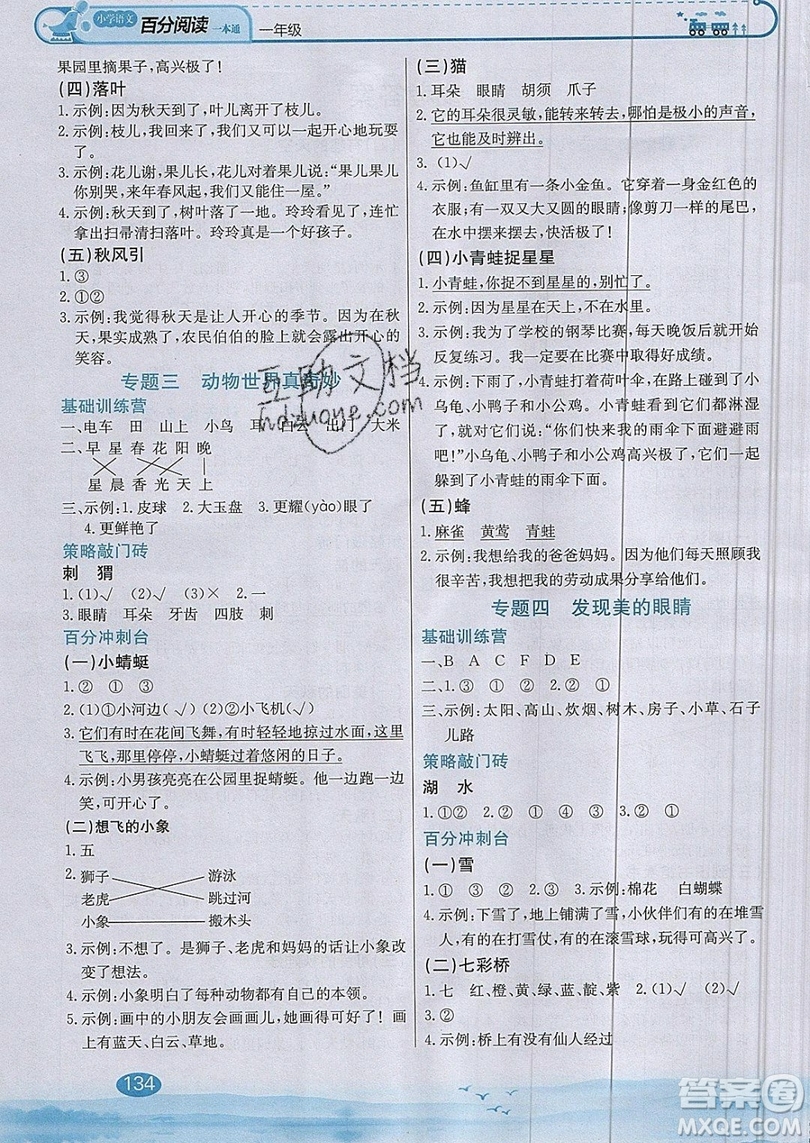 小学语文 百分阅读 一本通 一年级
果园里摘果子，高兴极了！
(四)落叶
1. 示例：因为秋天到了，叶儿离开了枝儿。
2. 示例：枝儿，我和你又可以一起开心地玩耍
了。
3. 示例：花儿谢，果儿长，花儿对果儿说：“果儿果儿
你别哭，来年春风起，我们又相见。”
4. 示例：秋天到了，树叶落了一地。玲玲看见，连忙
拿出扫帚清扫落叶。玲玲真是个好孩子。
(五)秋风引
1. ③
2. ①②
3. 示例：我觉得秋天是让人开心的季节。因为在秋
天，果实成熟了，农民伯伯的脸上就会露出开心的
笑容。
专题三 动物世界真奇妙
基础训练营
一、电车 田 山上 小鸟 耳 白云 出门 大米
二、早 星 春 花 阳 晚
星 晨 香 光 天 上
三、示例：1. 皮球 2. 大玉盘 3. 更耀(yào)眼了
4. 更鲜艳了
策略敲门砖
刺 猬
1. (1)√ (2)√ (3)× 2. 一
3. 眼睛 耳朵 牙齿 四肢 刺
百分冲刺台
(一)小蜻蜓
1. ② ① ③
2. (1)①小河边(√) (2)②小飞机(√)
3. 它们有时在花间飞舞，有时轻轻地掠过水面，这里
飞飞，那里停停，小蜻蜓过着悠闲的日子。
4. 示例：小男孩亮亮在公园里捉蜻蜓。他一边跑一边
笑，可开心了。
(二)想飞的小象
1. 五
2. 狮子 游泳
老虎 跳过河
小象 搬木头
3. 示例：不想了。是狮子、老虎和妈妈的话让小象改
变了想法。
4. 示例：小象明白了每种动物都有自己的本领。
5. 示例：画中的小朋友会画画儿，她画得可好了！画
上有蓝天、白云、草地。
(三)猫
1. 耳朵 眼睛 胡须 爪子
2. 它的耳朵很灵敏，能转来转去，哪怕是极小的声音，
它也能及时辨出。
3. (1)√
4. 示例：鱼缸里有一条小金鱼。它有着一身金红色的
衣服；有一双又大又圆的眼睛；有像剪刀一样的尾巴，
在水中摆来摆去，快活极了！
(四)小青蛙捉星星
1. 小青蛙，你捉不到星星的，别忙了。
2. 示例：因为星星在天上，不在水里。
3. 示例：我为了学校的钢琴比赛，每天放学后就开始
反复练习。一天天过去了，我在比赛中取得好成绩。
4. 示例：下雨了，小青蛙打着雨伞出来，在路上碰到了小
乌龟、小鸭子和小公鸡。小青蛙看到他们都淋湿
了，就对它们说：“你们快来我的雨伞下面避避雨
吧！”小乌龟、小鸭子和小公鸡高兴极了！它们都
躲到了小青蛙的雨伞下面。
(五)蜂
1. 麻雀 黄莺 青蛙
2. 示例：我想给我的爸爸妈妈。因为他们每天照顾我
很辛苦，我想把我的劳动成果分享给他们。
专题四 发现美的眼睛
基础训练营
一、B A C F D E
二、1. ③ ① ② 2. ① ③ ②
三、示例：太阳、高山、炊烟、树木、房子、小草、石子
儿路
策略敲门砖
湖 水
1. ①② 2. ② ① ④ ③ 3. ② ①
百分冲刺台
(一)雪
1. ② ③ ① 2. ③ 3. 示例：棉花 白蝴蝶
4. 示例：下雪了，地上铺满了雪，小伙伴们有的在堆雪
人，有的在打雪仗，有的在滚雪球，玩得可高兴了。
(二)七彩桥
1. 七 红、橙、黄、绿、蓝、靛、紫 2. (1)√ (2)√
3. ②
4. 示例：桥上有没有仙人经过
134
互助文档
hdzuoye.com
答案圈
MXQE.COM